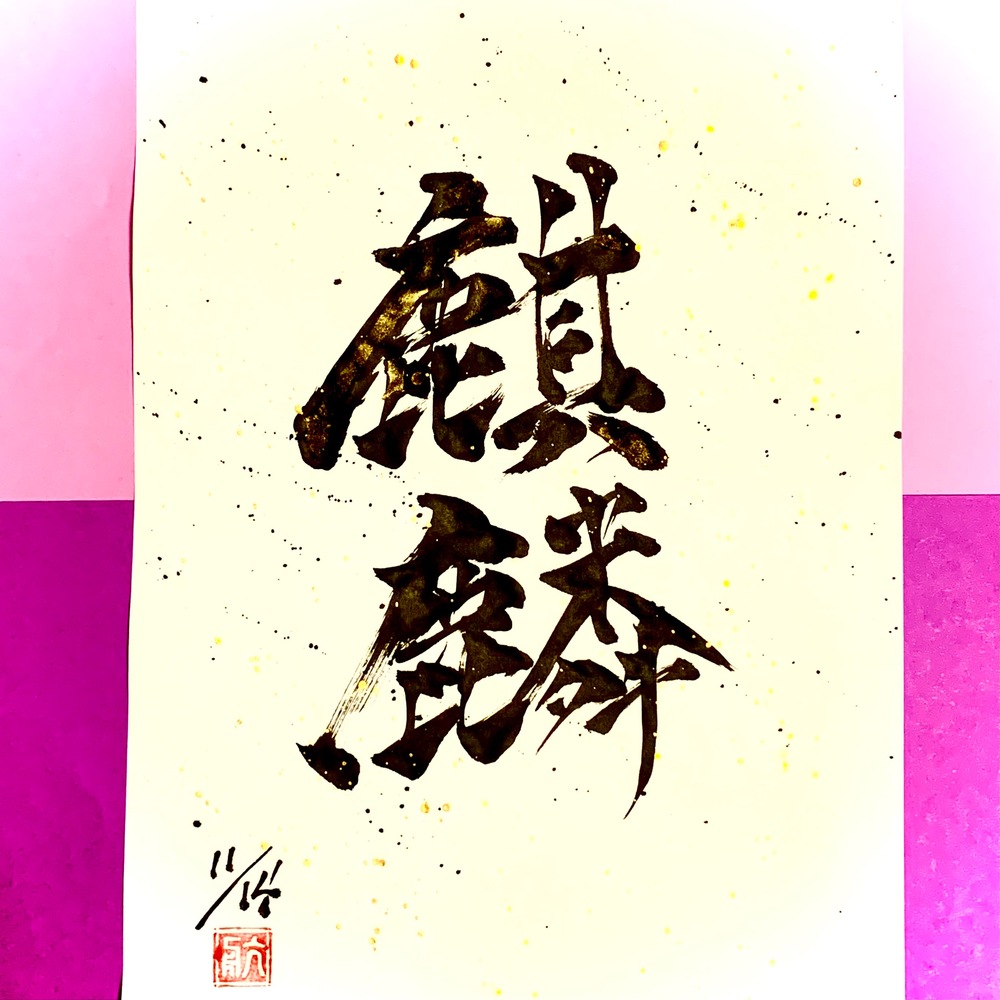 麒
麟
11/14